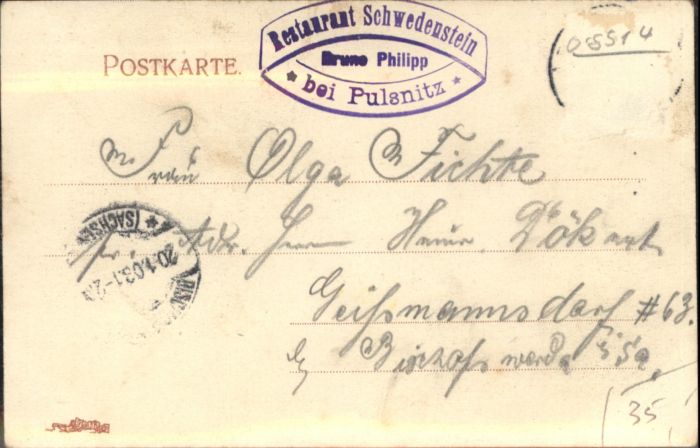 Restaurant Schwedenstein
Bruno Philipp
* bei Pulsnitz *
08814
POSTKARTE.
Frau Olga Fichte
(SACHSEN) *
20.1.03.1-2
Adr. Herrn Dök
Geißmannsdorf #63.
b/ Bischofswerda i/Sa.
35